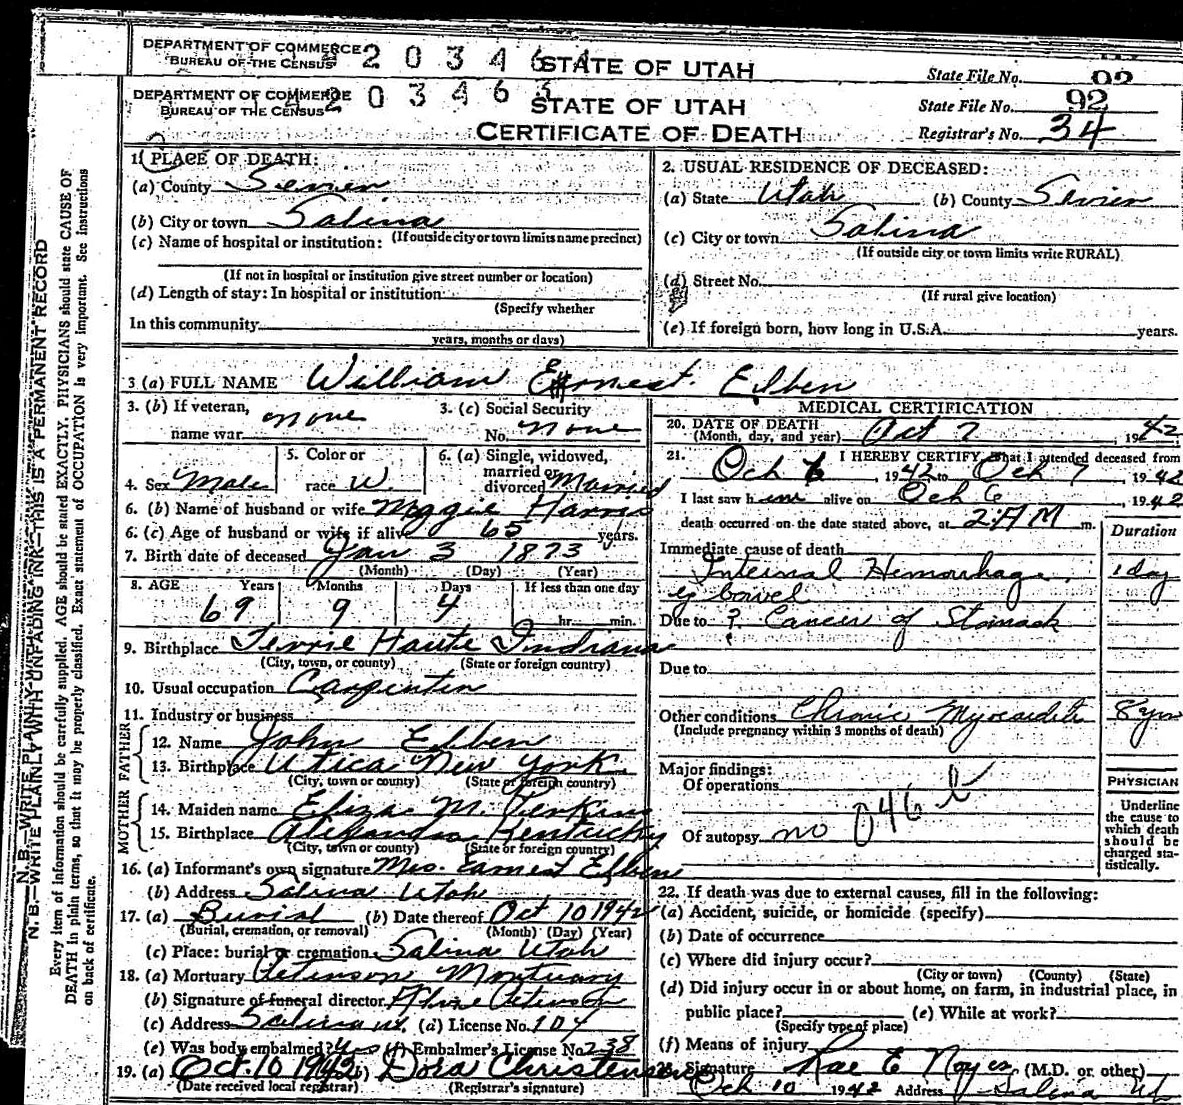 DEPARTMENT OF COMMERCE
BUREAU OF THE CENSUS
2 0 3 4 6
STATE OF UTAH
State File No. 92
DEPARTMENT OF COMMERCE
BUREAU OF THE CENSUS
2 0 3 4 6 3
STATE OF UTAH
State File No. 92
CERTIFICATE OF DEATH
Registrar's No. 34
1. PLACE OF DEATH:
(a) County Sevier
(b) City or town Salina
(If outside city or town limits name precinct)
(c) Name of hospital or institution:
(If not in hospital or institution give street number or location)
(d) Length of stay: In hospital or institution
(Specify whether
In this community
years, months or days)
2. USUAL RESIDENCE OF DECEASED:
(a) State Utah (b) County Sevier
(c) City or town Salina
(If outside city or town limits write RURAL)
(d) Street No.
(If rural give location)
(e) If foreign born, how long in U.S.A. years.
3 (a) FULL NAME William Ernest Elben
3. (b) If veteran, name war none
3. (c) Social Security No. none
4. Sex Male
5. Color or race W.
6. (a) Single, widowed, married or divorced Married
6. (b) Name of husband or wife Maggie Harris
6. (c) Age of husband or wife if alive 65 years.
7. Birth date of deceased Jan 3 1873
(Month) (Day) (Year)
8. AGE Years Months Days If less than one day
69 9 4 hr. min.
9. Birthplace Terrie Haute Indiana
(City, town, or county) (State or foreign country)
10. Usual occupation Carpenter
11. Industry or business
FATHER
12. Name John Elben
13. Birthplace Utica New York
(City, town or county) (State or foreign country)
MOTHER
14. Maiden name Eliza M. Jenkins
15. Birthplace Alexandria Kentucky
(City, town or county) (State or foreign country)
16. (a) Informant's own signature Mrs. Earnest Elben
(b) Address Salina Utah
17. (a) Burial (b) Date thereof Oct 10 1942
(Burial, cremation, or removal) (Month) (Day) (Year)
(c) Place: burial or cremation Salina Utah
18. (a) Mortuary Peterson Mortuary
(b) Signature of funeral director Peterson
(c) Address Salina ut. (d) License No. 104
(e) Was body embalmed? Yes (f) Embalmer's License No. 238
19. (a) Oct. 10 1942 (b) Dora Christensen
(Date received local registrar) (Registrar's signature)
MEDICAL CERTIFICATION
20. DATE OF DEATH
(Month, day, and year) Oct 7, 1942
21. I HEREBY CERTIFY, that I attended deceased from
Oct 6, 1942 to Oct 7 1942
I last saw him alive on Oct 6, 1942
death occurred on the date stated above, at 2:AM m.
Duration
Immediate cause of death
Internal Hemorrhage 1 day
of bowel
Due to ? Cancer of Stomach
Due to
Other conditions Chronic Myocardits 8 yrs
(Include pregnancy within 3 months of death)
Major findings:
Of operations
046 b
Of autopsy no
PHYSICIAN
Underline the cause to which death should be charged statistically.
22. If death was due to external causes, fill in the following:
(a) Accident, suicide, or homicide (specify)
(b) Date of occurrence
(c) Where did injury occur?
(City or town) (County) (State)
(d) Did injury occur in or about home, on farm, in industrial place, in
public place? (e) While at work?
(Specify type of place)
(f) Means of injury
Signature Rae E Noyes (M.D. or other)
Oct 10 1942 Address Salina Ut
N. B.—WRITE PLAINLY WITH UNFADING INK—THIS IS A PERMANENT RECORD
Every item of information should be carefully supplied. AGE should be stated EXACTLY. PHYSICIANS should state CAUSE OF
DEATH in plain terms, so that it may be properly classified. Exact statement of OCCUPATION is very important. See instructions
on back of certificate.